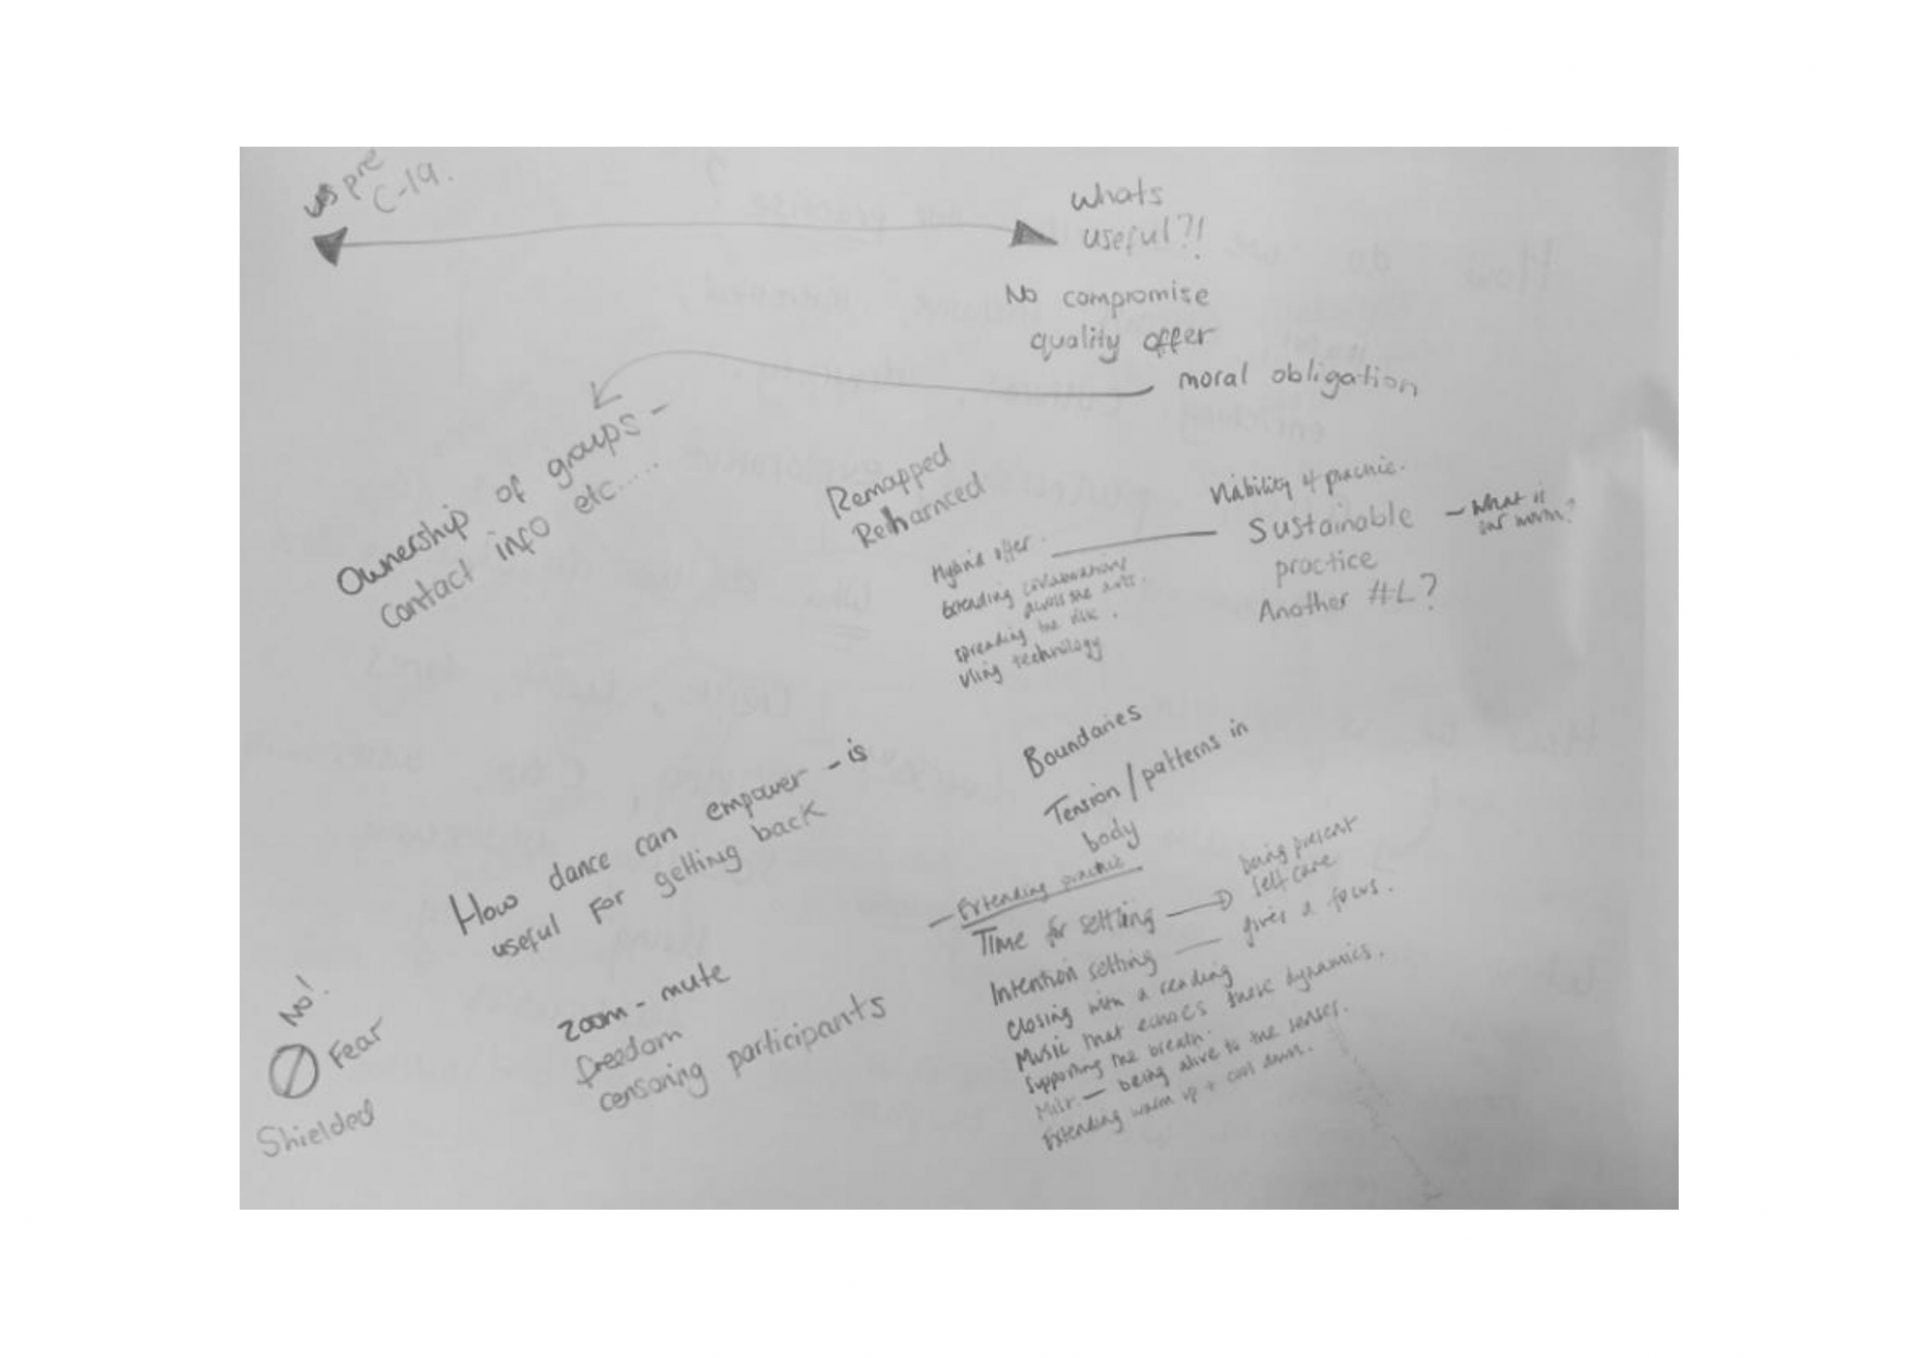 us pre
C-19.
whats
useful?!
No compromise
quality offer
moral obligation
Ownership of groups -
contact info etc....
Remapped
Reharnced
Hybrid offer.
Extending collaborations
across the arts.
spreading the risk.
Using technology
Viability of practice.
Sustainable
practice
Another HL?
- What is
our norm?
How dance can empower - is
useful for getting back
Boundaries
Tension/patterns in
body
- Extending practice
Time for settling
being present
self care
Intention setting — gives a focus.
Closing with a reading
Music that echoes these dynamics.
Supporting the breath.
— being alive to the senses.
Extending warm up + cool down.
No!
Fear
Shielded
Zoom - mute
freedom
censoring participants